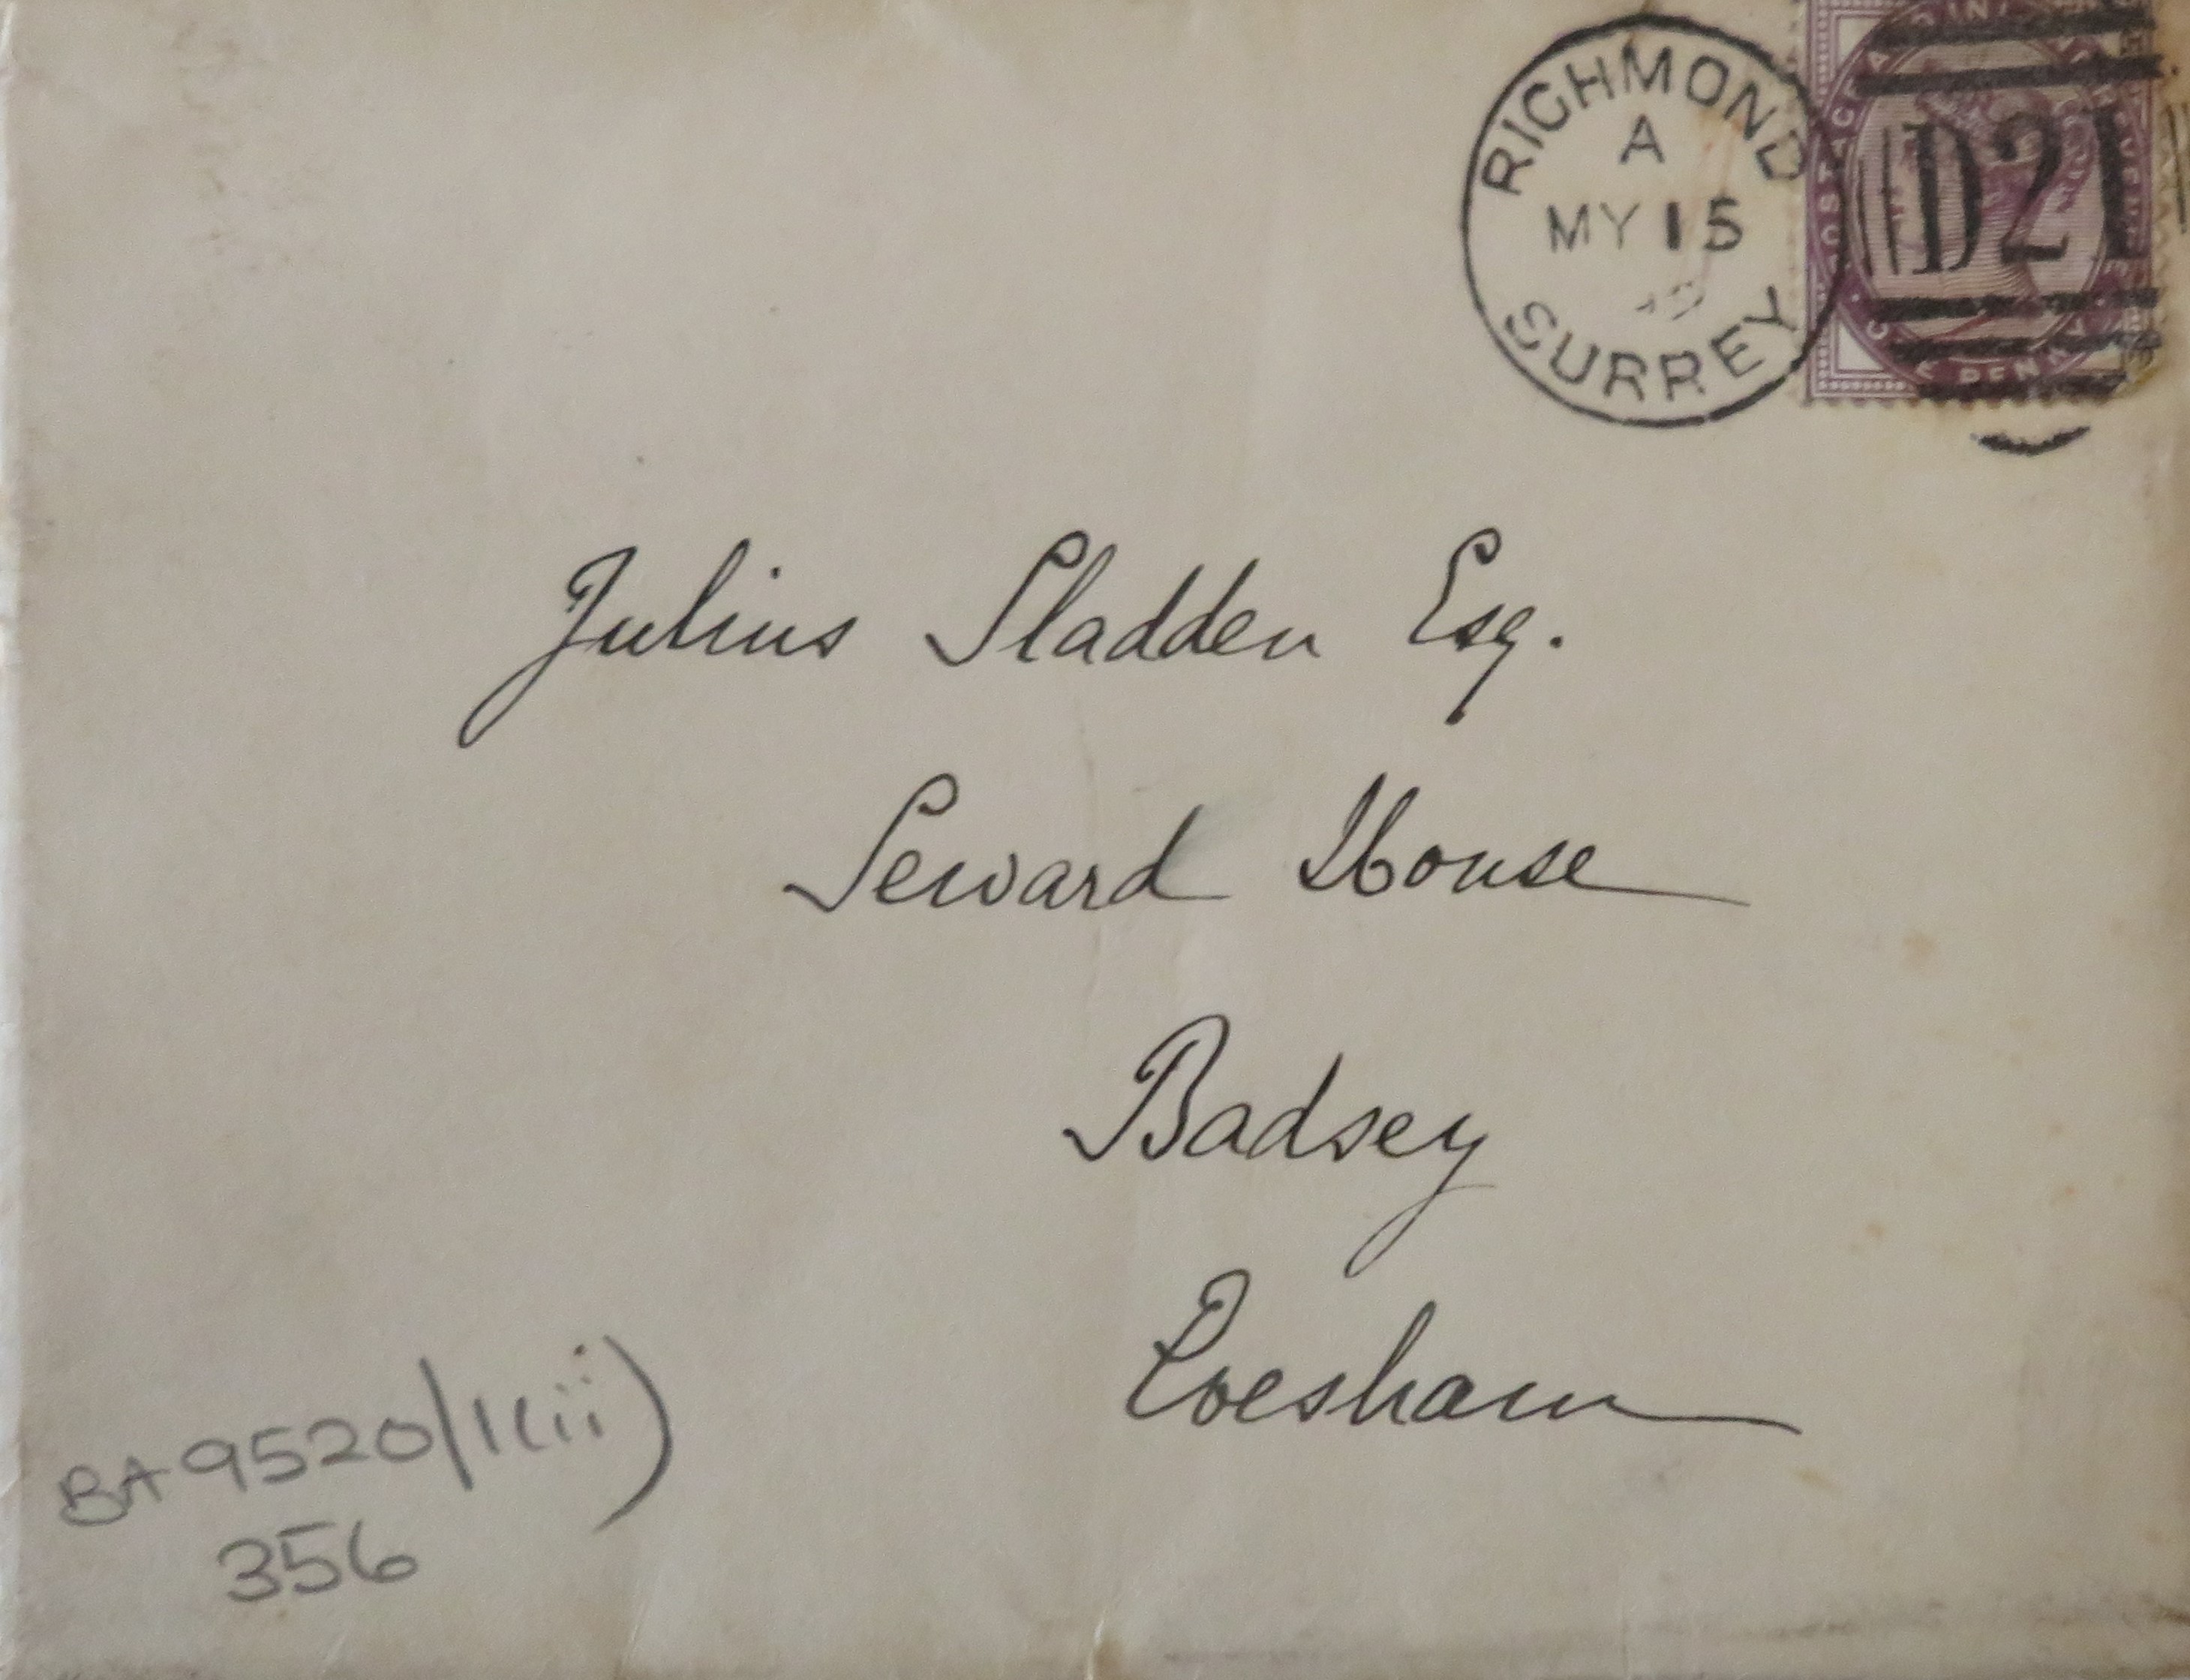 RICHMOND
A
MY 15
SURREY
D21
Julius Sladden Esq.
Seward House
Badsey
Evesham
BA 9520/1(ii)
356